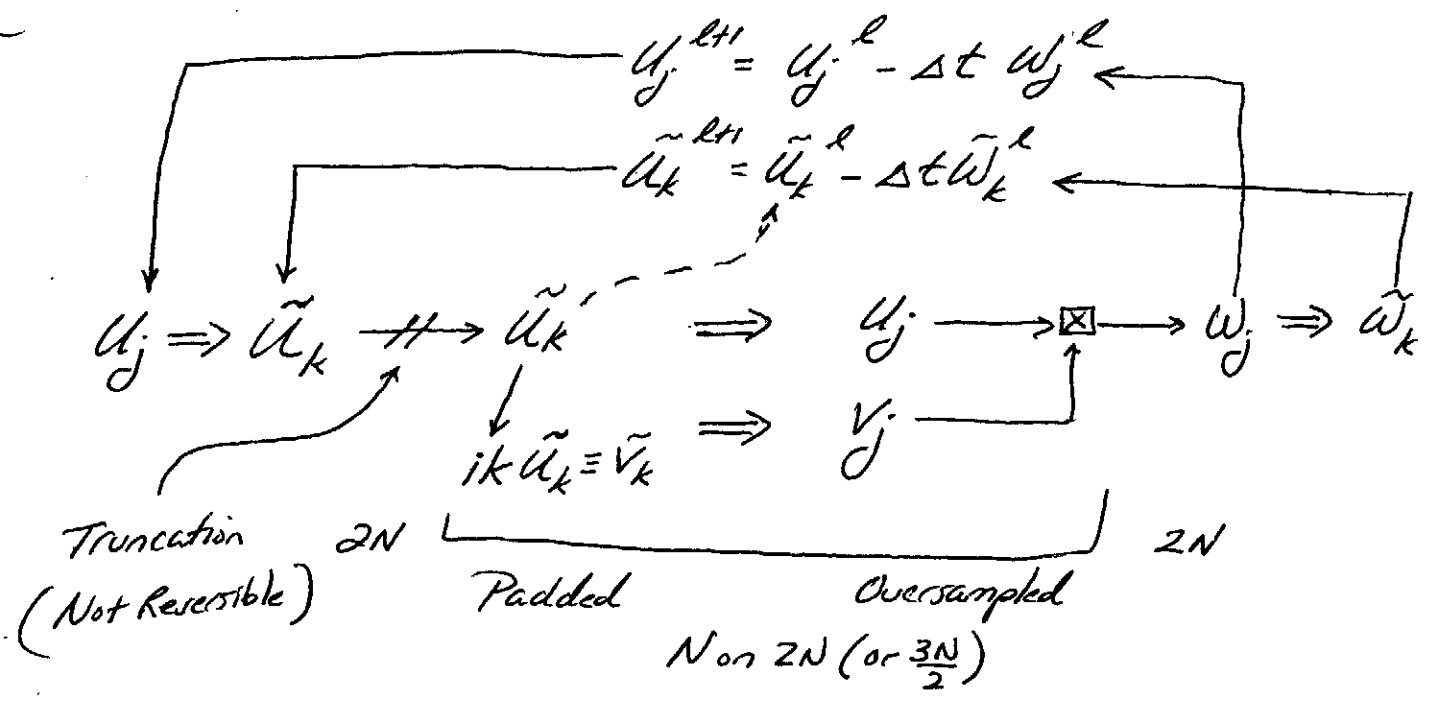 u_j^{l+1} = u_j^l - Δt w_j^l
ũ_k^{l+1} = ũ_k^l - Δt w̃_k^l
u_j ⇒ ũ_k → ũ_k ⇒ u_j → ☒ → w_j ⇒ w̃_k
ikũ_k ≡ ṽ_k ⇒ v_j
Truncation 2N 2N
(Not Reversible) Padded Oversampled
N on 2N (or 3N/2)